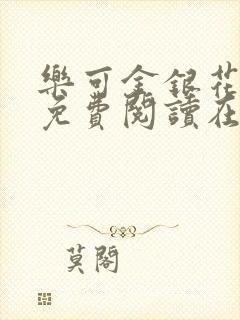 樂可金銀花
免費閱讀在
莫閣